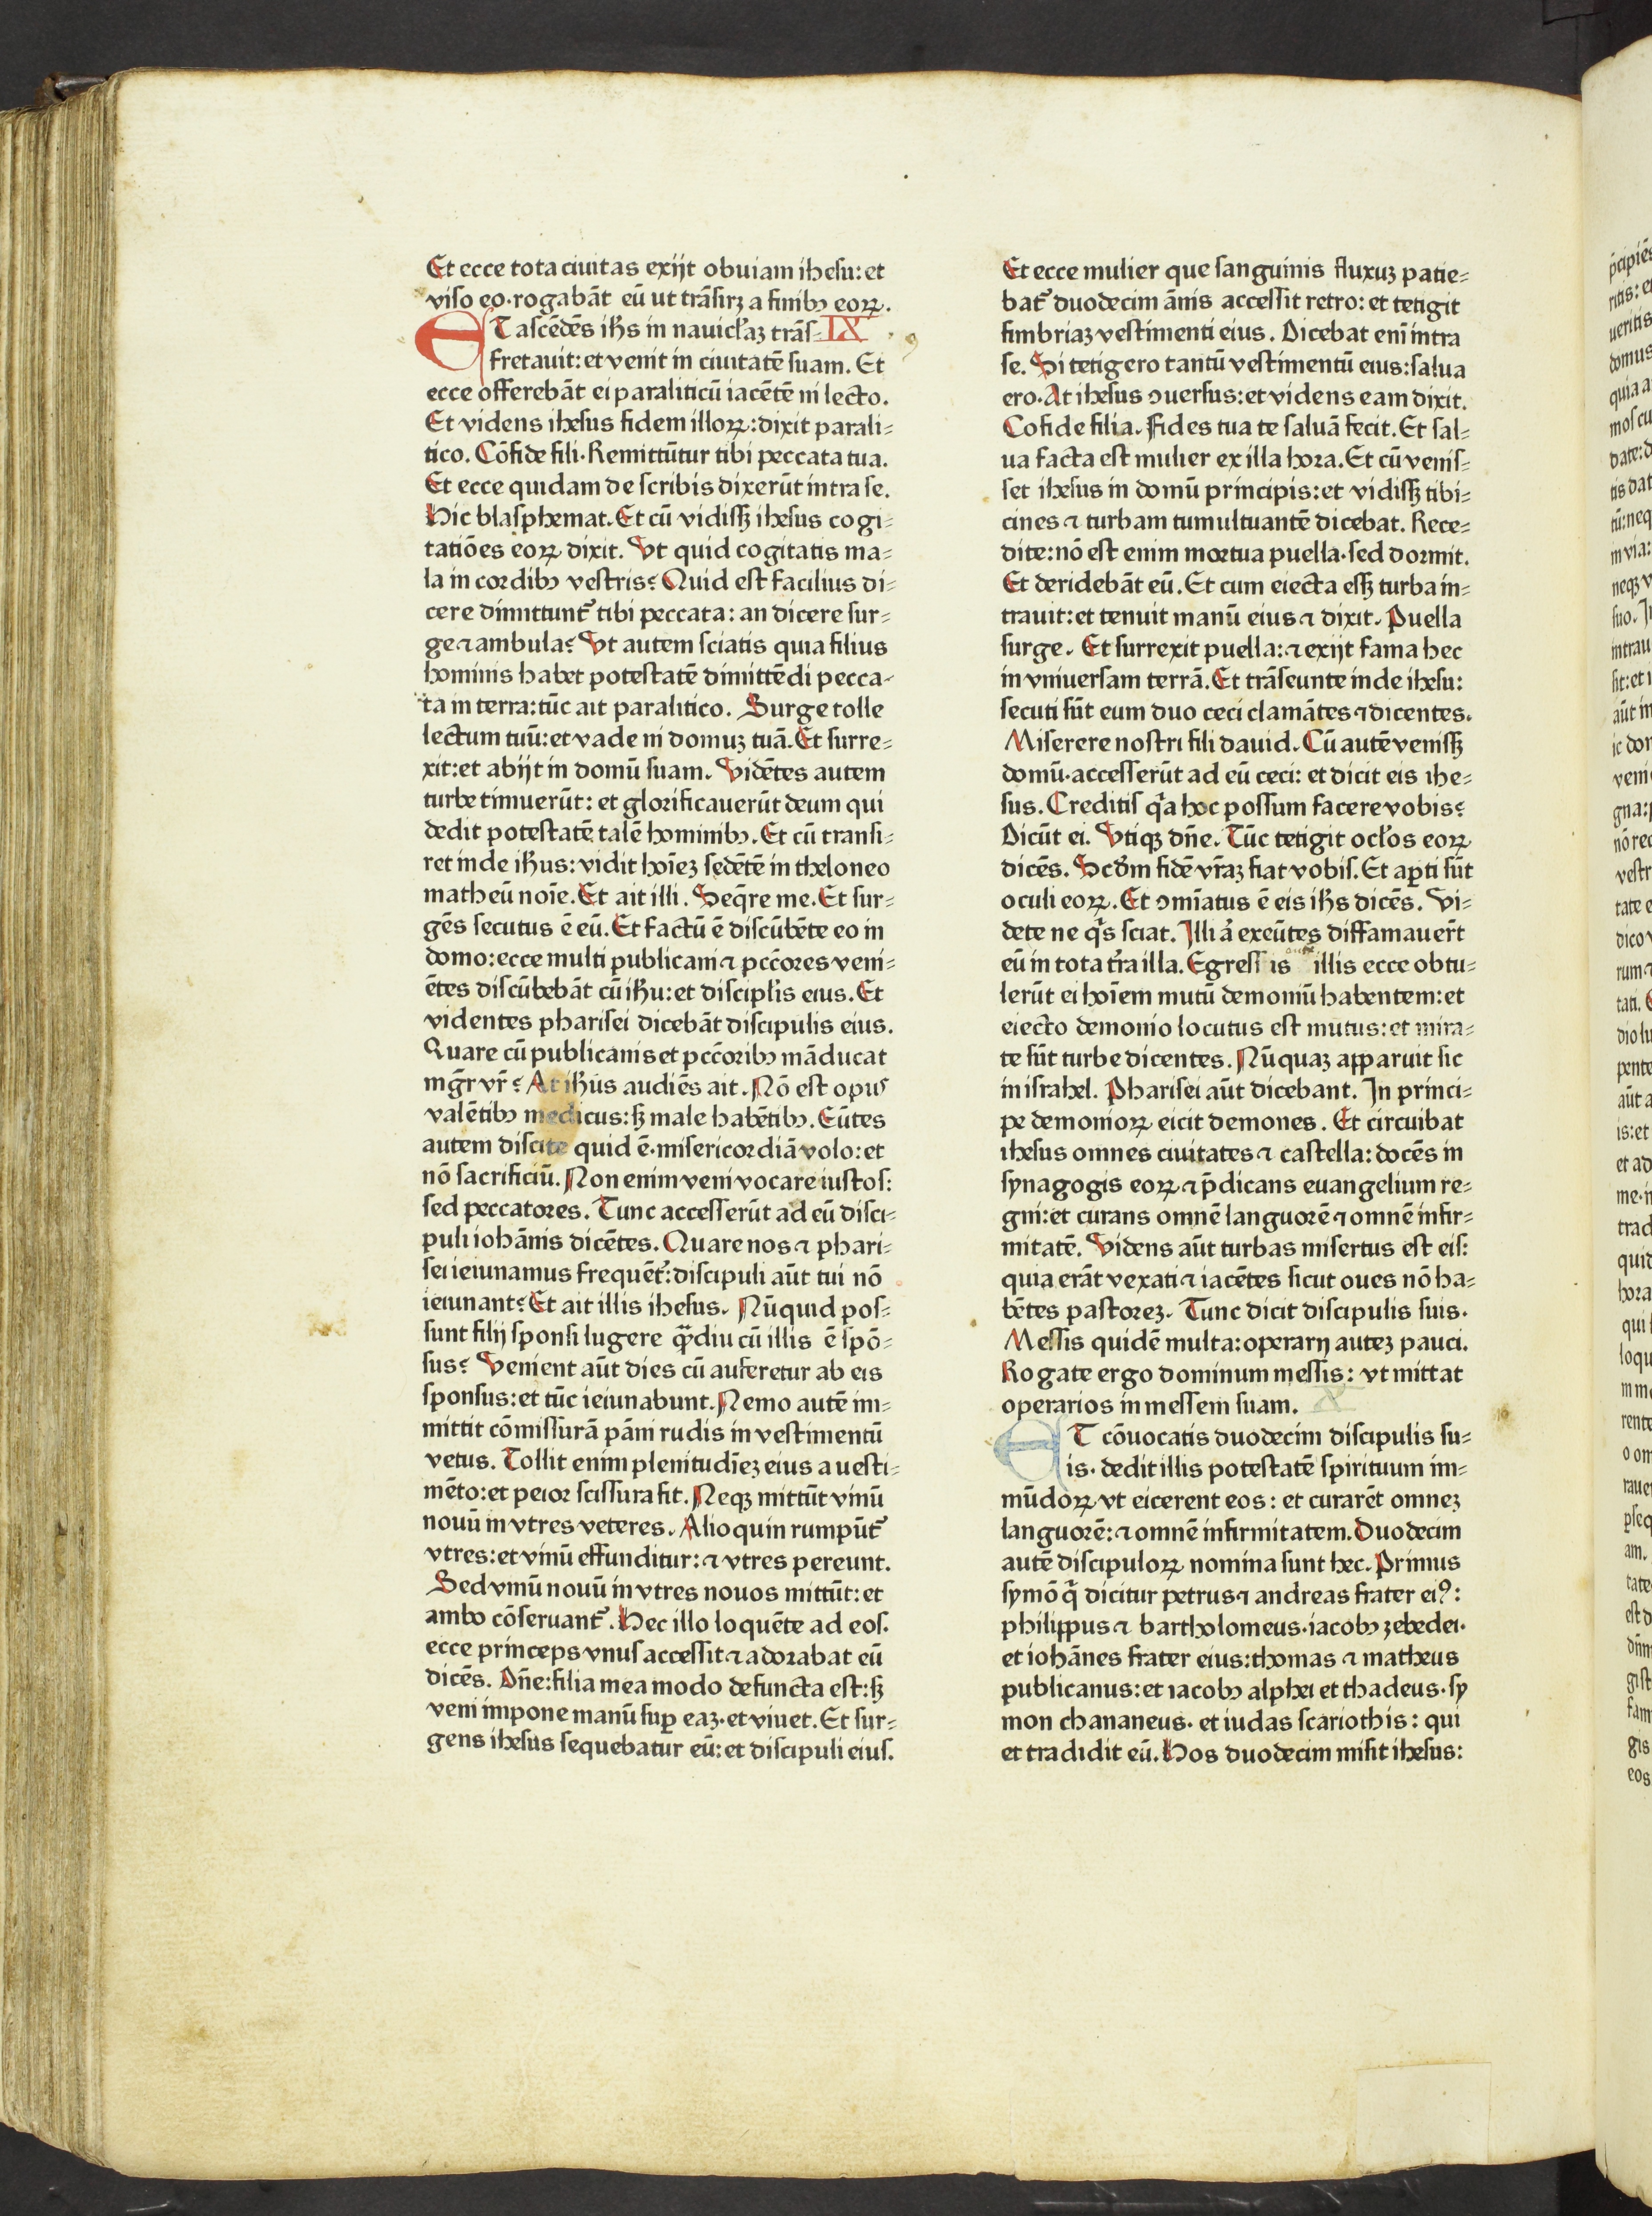 Et ecce tota ciuitas exijt obuiam ihesu: et
viso eo·rogabāt eū ut trāsirꝫ a finibꝰ eoꝝ.
ET ascēdēs ihs̄ in nauicl̄aꝫ trās- IX
fretauit: et venit in ciuitatē suam. Et
ecce offerebāt ei paraliticū iacētē in lecto.
Et videns ihesus fidem illoꝝ: dixit parali-
tico. Cōfide fili. Remittūtur tibi peccata tua.
Et ecce quidam de scribis dixerūt intra se.
Hic blasphemat. Et cū vidissꝫ ihesus cogi-
tatiōes eoꝝ dixit. Vt quid cogitatis ma-
la in cordibꝰ vestris? Quid est facilius di-
cere dimittunt᷑ tibi peccata: an dicere sur-
ge ⁊ ambula? Vt autem sciatis quia filius
hominis habet potestatē dimittēdi pecca-
ta in terra: tūc ait paralitico. Surge tolle
lectum tuū: et vade in domuꝫ tuā. Et surre-
xit: et abijt in domū suam. Vidētes autem
turbe timuerūt: et glorificauerūt deum qui
dedit potestatē talē hominibꝰ. Et cū transi-
ret inde ihūs: vidit hoīeꝫ sedētē in theloneo
matheū noīe. Et ait illi. Seqr̄e me. Et sur-
gēs secutus ē eū. Et factū ē discūbēte eo in
domo: ecce multi publicani ⁊ pcc̄ores veni-
ētes discūbebāt cū ihū: et discipl̄is eius. Et
videntes pharisei dicebāt discipulis eius.
Quare cū publicanis et pcc̄oribꝰ māducat
mḡr vr̄? At ihūs audiēs ait. Nō est opus
valētibꝰ medicus: sꝫ male habētibꝰ. Eūtes
autem discite quid ē·misericordiā volo: et
nō sacrificiū. Non enim veni vocare iustos:
sed peccatores. Tunc accesserūt ad eū disci-
puli iohānis dicētes. Quare nos ⁊ phari-
sei ieiunamus frequēt᷑: discipuli aūt tui nō
ieiunant? Et ait illis ihesus. Nūquid pos-
sunt filij sponsi lugere qᷓ̄diu cū illis ē spō-
sus? Venient aūt dies cū auferetur ab eis
sponsus: et tūc ieiunabunt. Nemo autē im-
mittit cōmissurā pāni rudis in vestimentū
vetus. Tollit enim plenitudīeꝫ eius a uesti-
mēto: et peior scissura fit. Neqꝫ mittūt vinū
nouū in vtres veteres. Alioquin rumpūt᷑
vtres: et vinū effunditur: ⁊ vtres pereunt.
Sed vinū nouū in vtres nouos mittūt: et
ambo cōseruant᷑. Hec illo loquēte ad eos·
ecce princeps vnus accessit ⁊ adorabat eū
dicēs. Dn̄e: filia mea modo defuncta est: sꝫ
veni impone manū suꝑ eaꝫ·et viuet. Et sur-
gens ihesus sequebatur eū: et discipuli eius.
Et ecce mulier que sanguinis fluxuꝫ patie-
bat᷑ duodecim ānis accessit retro: et tetigit
fimbriaꝫ vestimenti eius. Dicebat enī intra
se. Si tetigero tantū vestimentū eius: salua
ero. At ihesus ꝯuersus: et videns eam dixit.
Cofide filia. Fides tua te saluā fecit. Et sal-
ua facta est mulier ex illa hora. Et cū venis-
set ihesus in domū principis: et vidissꝫ tibi-
cines ⁊ turbam tumultuantē dicebat. Rece-
dite: nō est enim mortua puella·sed dormit.
Et deridebāt eū. Et cum eiecta essꝫ turba in-
trauit: et tenuit manū eius ⁊ dixit. Puella
surge. Et surrexit puella: ⁊ exijt fama hec
in vniuersam terrā. Et trāseunte inde ihesu:
secuti sūt eum duo ceci clamātes ⁊ dicentes.
Miserere nostri fili dauid. Cū autē venissꝫ
domū·accesserūt ad eū ceci: et dicit eis ihe-
sus. Creditis qᷓa hoc possum facere vobis?
Dicūt ei. Vtiqꝫ dn̄e. Tūc tetigit ocl̄os eoꝝ
dicēs. Scd̄m fidē vr̄aꝫ fiat vobis. Et aꝑti sūt
oculi eoꝝ. Et ꝯmīatus ē eis ihs̄ dicēs. Vi-
dete ne qͥs sciat. Illi ā exeūtes diffamauer̄t
eū in tota tr̄ra illa. Egressis autē illis ecce obtu-
lerūt ei hoīem mutū demoniū habentem: et
eiecto demonio locutus est mutus: et mira-
te sūt turbe dicentes. Nūquaꝫ apparuit sic
in israhel. Pharisei aūt dicebant. In princi-
pe demonioꝝ eicit demones. Et circuibat
ihesus omnes ciuitates ⁊ castella: docēs in
synagogis eoꝝ ⁊ p̄dicans euangelium re-
gni: et curans omnē languorē ⁊ omnē infir-
mitatē. Videns aūt turbas misertus est eis:
quia erāt vexati ⁊ iacētes sicut oues nō ha-
bētes pastoreꝫ. Tunc dicit discipulis suis.
Messis quidē multa: operarij auteꝫ pauci.
Rogate ergo dominum messis: vt mittat
operarios in messem suam. X
ET cōuocatis duodecim discipulis su-
is· dedit illis potestatē spirituum im-
mūdoꝝ vt eicerent eos: et curarēt omneꝫ
languorē: ⁊ omnē infirmitatem. Duodecim
autē discipuloꝝ nomina sunt hec. Primus
symō qͥ dicitur petrus ⁊ andreas frater eiꝰ:
philippus ⁊ bartholomeus·iacobꝰ zebedei·
et iohānes frater eius: thomas ⁊ matheus
publicanus: et iacobꝰ alphei et thadeus·sy
mon chananeus· et iudas scariothis: qui
et tradidit eū. Hos duodecim misit ihesus: